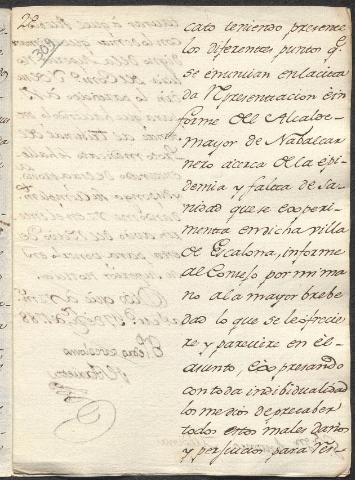 28
309
cato teniendo presente
los diferentes puntos q.e
se enuncian en la cita
da Representacion è in
forme del Alcalde
mayor de Nabalcar
nero acerca de la epi
demia y falta de sa
nidad que se experi
menta en dicha villa
de Escalona, informe
al Consejo por mi ma
no a la mayor breve
dad lo que se le ofrecie
re y pareciere en el
asunto, expresando
con toda indibidualidad
los medios de precaber
todos estos males daños
y perjuicios para